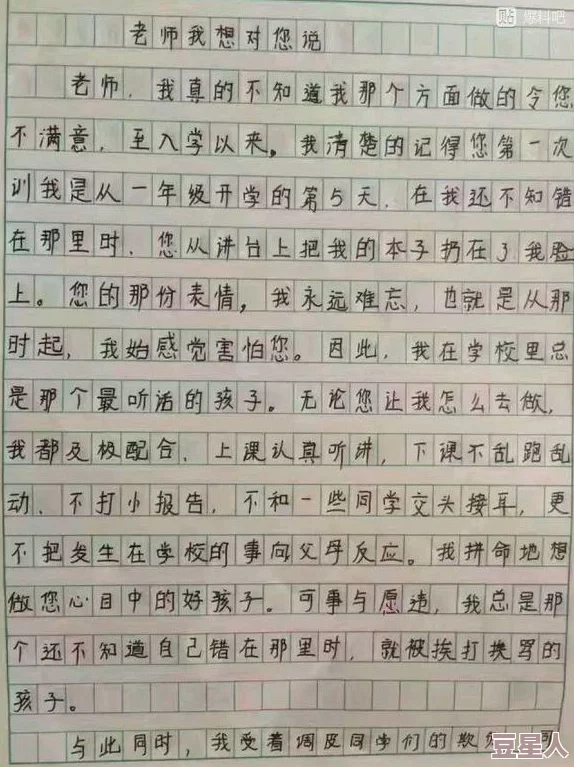 贴 爆料吧
老师我想对您说
老师，我真的不知道我那个方面做的令您
不满意，至入学以来。我清楚的记得您第一次
训我是从一年级开学的第5天，在我还不知错
在那里时，您从讲台上把我的本子扔在了我脸
上。您的那份表情，我永远难忘，也就是从那
时起，我始感觉害怕您。因此，我在学校里总
是那个最听话的孩子。无论您让我怎么去做，
我都及极配合，上课认真听讲，下课不乱跑乱
动、不打小报告，不和一些同学交头接耳，更
不把发生在学校的事向父母反应。我拼命地想
做您心目中的好孩子。可事与愿违，我总是那
个还不知道自己错在那里时，就被挨打挨骂的
孩子。
与此同时，我受着调皮同学们的欺
豆星人